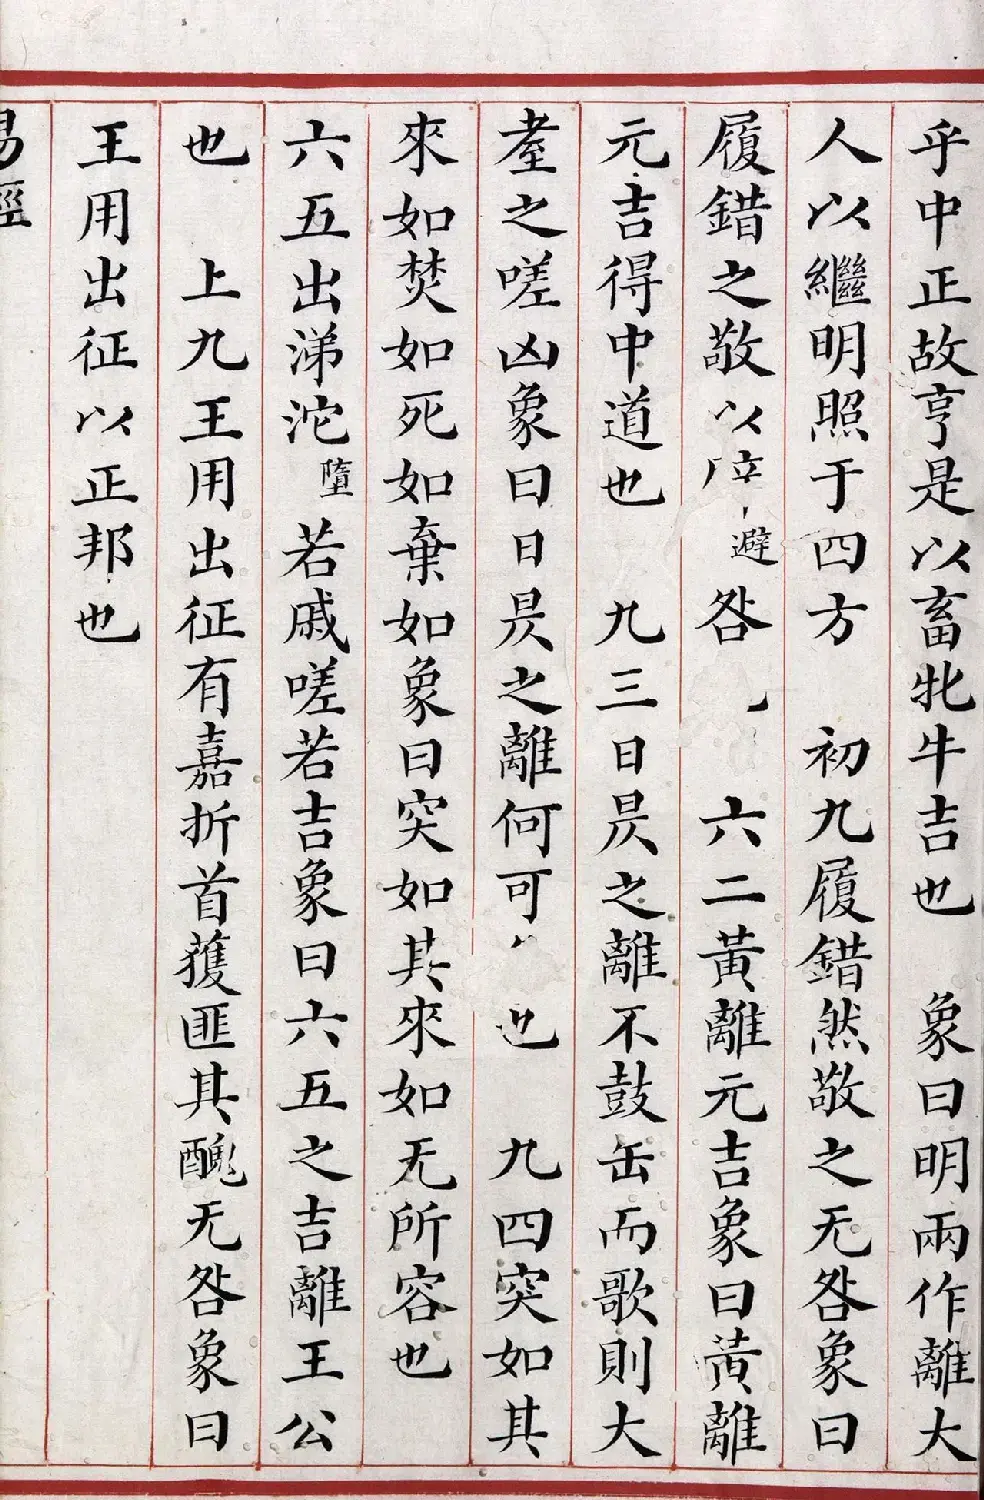 乎中正故亨是以畜牝牛吉也　象曰明兩作離大
人以繼明照于四方　初九履錯然敬之无咎象曰
履錯之敬以避咎　六二黃離元吉象曰黃離
元吉得中道也　九三日昃之離不鼓缶而歌則大
耋之嗟凶象曰日昃之離何可也　九四突如其
來如焚如死如棄如象曰突如其來如无所容也
六五出涕沱墮若戚嗟若吉象曰六五之吉離王公
也　上九王用出征有嘉折首獲匪其醜无咎象曰
王用出征以正邦也
易經